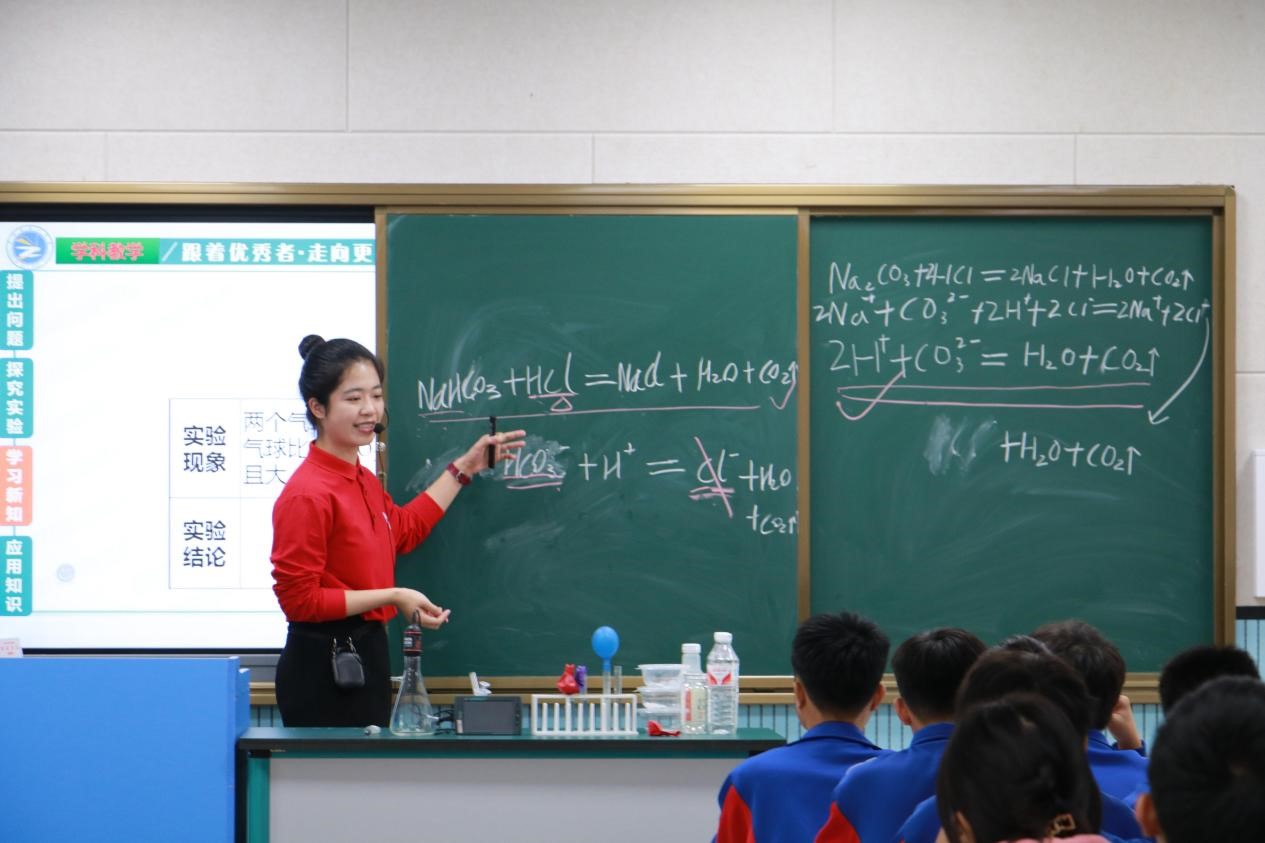 学科教学 / 跟着优秀者·走向更
提出问题
探究实验
学习新知
应用知识
实验现象
两个气
气球比
且大
实验结论
NaHCO₃+HCl=NaCl+H₂O+CO₂↑
HCO₃⁻+H⁺=Cl⁻+H₂O
+CO₂↑
Na₂CO₃+2HCl=2NaCl+H₂O+CO₂↑
2Na⁺+CO₃²⁻+2H⁺+2Cl⁻=2Na⁺+2Cl⁻
2H⁺+CO₃²⁻=H₂O+CO₂↑
+H₂O+CO₂↑